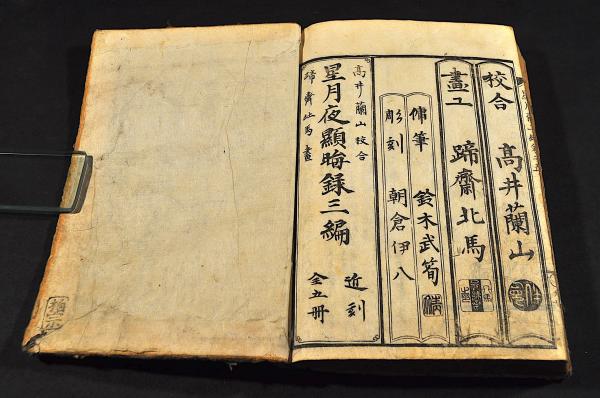 校合 高井蘭山
畫工 蹄齋北馬
傭筆 鈴木武筍
彫刻 朝倉伊八
高井蘭山校合
星月夜顯晦録三編
蹄齋北馬畫
近刻
全五冊